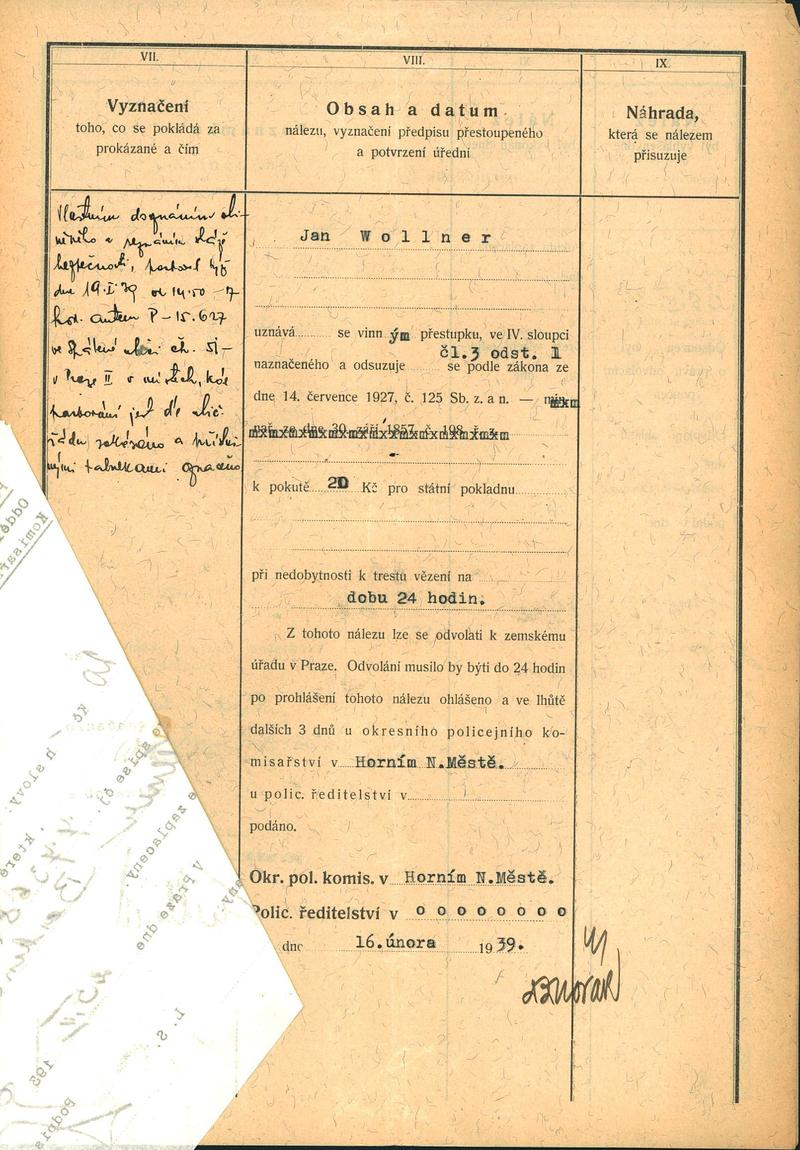 VII.
Vyznačení
toho, co se pokládá za
prokázané a čím
VIII.
Obsah a datum
nálezu, vyznačení předpisu přestoupeného
a potvrzení úřední
IX.
Náhrada,
která se nálezem
přisuzuje
Vlastním doznáním obvi-
něného a seznáním stráže
bezpečnosti, parkoval týž
dne 19.I.39 od 14.50 - 17
hod. autem P - 15.627
ve Spálené ulici čís. 51 -
v Praze II v místech, kde
parkování jest dle ulič.
řádu zakázáno a přísluš
nými tabulkami označeno
Jan Wollner
uznává se vinn ým přestupku, ve IV. sloupci
čl.3 odst. 1
naznačeného a odsuzuje se podle zákona ze
dne 14. července 1927, č. 125 Sb. z. a n. —
nař. ze dne 30. září 1857, č. 198 ř. z.
k pokutě 20 Kč pro státní pokladnu
při nedobytnosti k trestu vězení na
dobu 24 hodin.
Z tohoto nálezu lze se odvolati k zemskému
úřadu v Praze. Odvolání musilo by býti do 24 hodin
po prohlášení tohoto nálezu ohlášeno a ve lhůtě
dalších 3 dnů u okresního policejního ko-
misařství v Horním N.Městě.
u polic. ředitelství v
podáno.
Okr. pol. komis. v Horním N.Městě.
Polic. ředitelství v o o o o o o o o
dne 16.února 1939.
Dvořák
V Praze dne
L. S.
193
Podpis